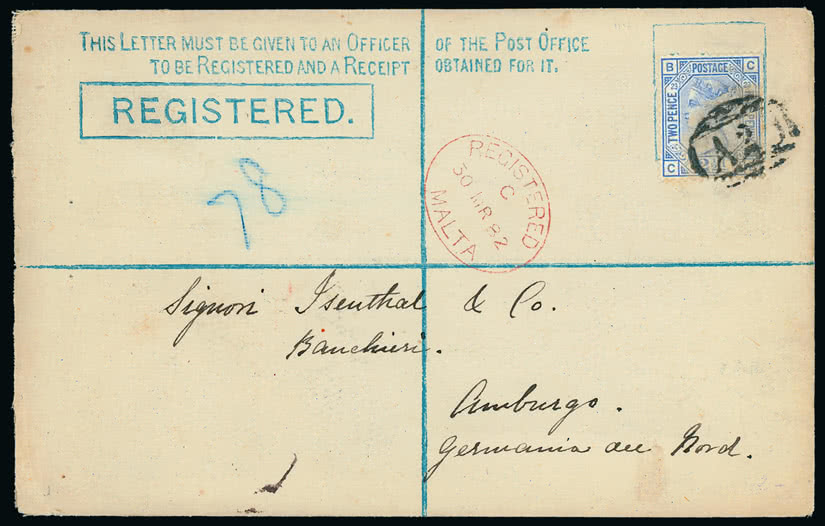 THIS LETTER MUST BE GIVEN TO AN OFFICER OF THE POST OFFICE
TO BE REGISTERED AND A RECEIPT OBTAINED FOR IT.
REGISTERED.
B POSTAGE C
TWO PENCE
C
A25
78
REGISTERED
C
30 MR 82
MALTA
Signori Isenthal & Co.
Banchieri.
Amburgo.
Germania del Nord.